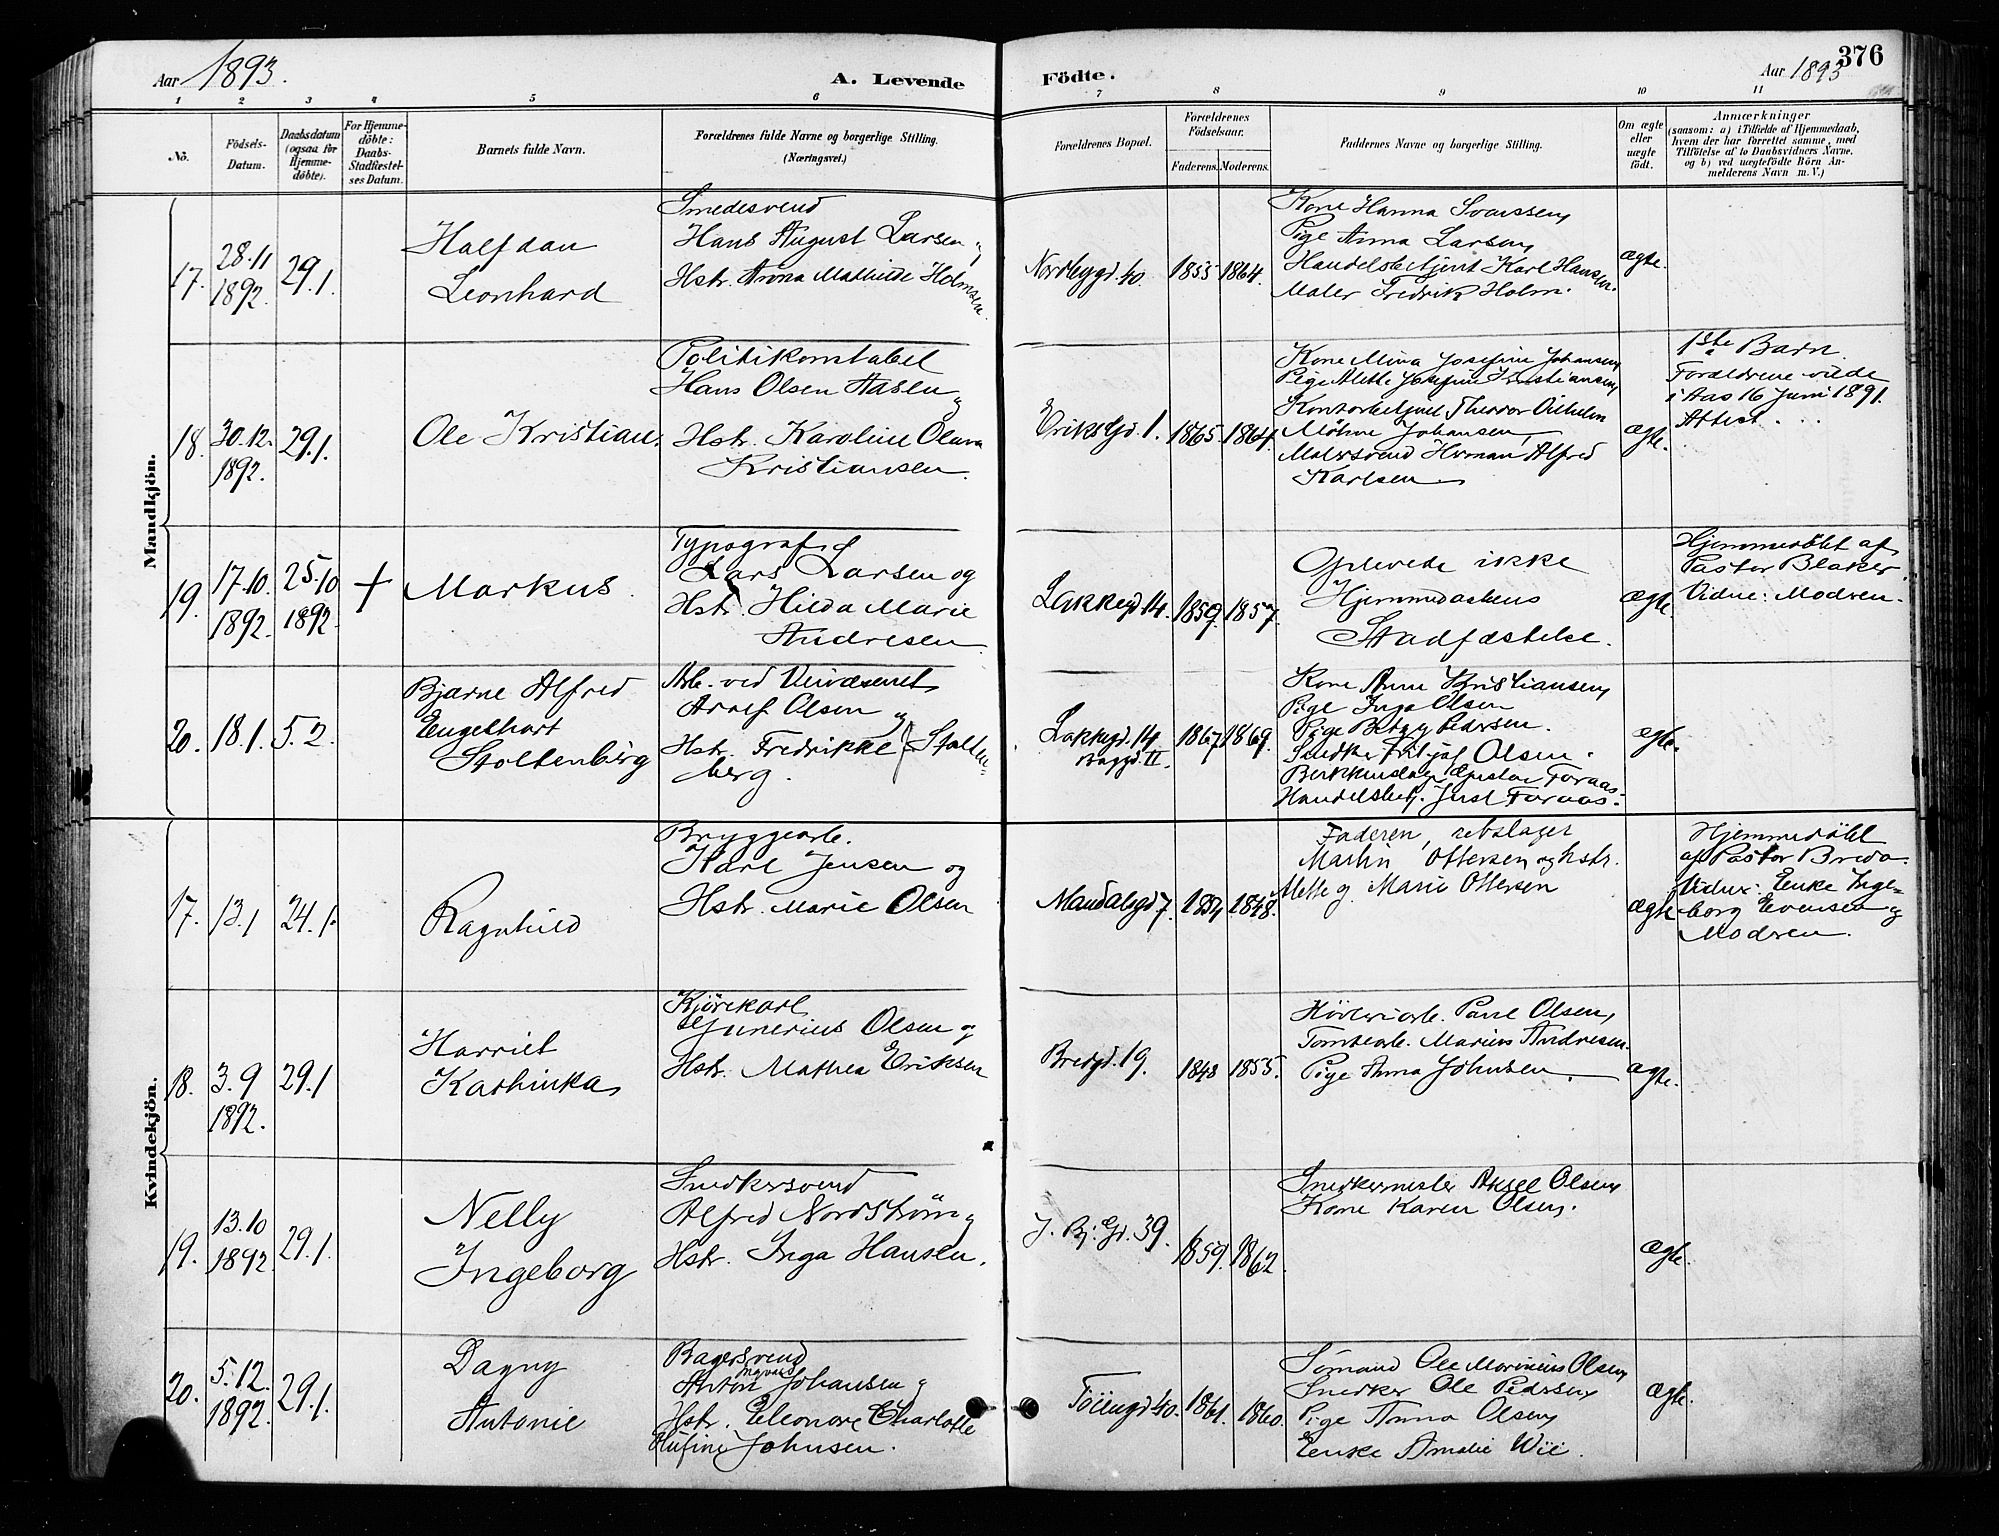 Aar 1893.
A. Levende
Födte.
Aar 1893
376
1 2 3 4 5 6 7 8 9 10 11
No.
Födsels-
Datum.
Daabsdatum
(ogsaa for
Hjemme-
döbte).
For Hjemme-
döbte:
Daabs-
Stadfæstel-
ses Datum.
Barnets fulde Navn.
Forældrenes fulde Navne og borgerlige Stilling.
(Næringsvei.)
Forældrenes Bopæl.
Forældrenes
Födselsaar.
Faderens. Moderens.
Faddernes Navne og borgerlige Stilling.
Om ægte
eller
uægte
födt.
Anmærkninger
(saasom: a) i Tilfælde af Hjemmedaab,
hvem der har forrettet samme, med
Tilföielse af to Daabsvidners Navne,
og b) ved uægtefödte Börn An-
melderens Navn m. V.)
Mandkjön.
17.
28.11
1892.
29.1.
Halfdan
Leonhard
Smedesvend
Hans August Larsen og
Hstr. Anna Mathilde Holmsen.
Nordbygd. 40.
1855
1864.
Kone Hanna Svenssen,
Pige Anna Larsen,
Handelsbetjent Karl Hansen.
Maler Fredrik Holm.
ægte.
18.
30.12.
1892.
29.1.
Ole Kristian.
Politikonstabel
Hans Olsen Aasen og
Hstr. Karoline Olava
Kristiansen.
Eriksgd. 1.
1865.
1864.
Kone Mina Josefine Johansen,
Pige Mette Josefine Kristiansen,
Kontorbetjent Theodor Vilhelm
Johansen,
Malersvend Herman Alfred
Karlsen
ægte.
1ste Barn.
Forældrene viede
i Aas 16 Juni 1891.
Attest...
19.
17.10.
1892.
25.10
1892.
+
Markus.
Typograf
Lars Larsen og
Hstr. Hilda Marie
Andresen.
Lakkegd. 14.
1859.
1857.
Oplevede ikke
Hjemmedaabens
Stadfæstelse.
ægte.
Hjemmedöbt af
Pastor Blaker.
Vidne: Modren.
20.
18.1.
5.2.
Bjarne Alfred
Engelhart
Stoltenberg
Arb. ved Veivæsenet
Adolf Olsen og
Hstr. Fredrikke Stolten-
berg.
Lakkegd. 14
Baggd. II.
1867.
1869.
Kone Anne Kristiansen,
Pige Inga Olsen
Pige Betzy Pedersen.
Snedker Fritjof Olsen.
Foraas.
Handelsbetj. Just Foraas.
egte.
Kvindekjön.
17.
13.1
24.1.
Ragnhild
Bryggearb.
Karl Jensen og
Hstr. Marie Olsen
Mandalsgd 7.
1854
1848.
Faderen, rebslager
Martin Ottersen og hstr.
Mette og Marie Ottersen
ægte
Hjemmedöbt
af Pastor Breda.
Vidner: Enke Inge-
borg Evensen og
Modren.
18.
3.9
1892.
29.1
Harriet
Kathinka
Kjörekarl
Gunerius Olsen og
Hstr. Mathea Eriksen
Bredgd. 19.
1848
1855.
Paul Olsen,
Tomtearb. Marius Andresen.
Pige Anna Johnsen.
ægte.
19.
13.10
1892
29.1.
Nelly
Ingeborg
Snedkersvend
Alfred Nordström og
Hstr. Inga Hansen.
J. Bj. Gd. 39.
1859.
1862.
Snedkermester Aksel Olsen,
Kone Karen Olsen.
ægte.
20.
5.12.
1892.
29.1.
Dagny
Antonie
Bagersvend
Anton Johansen og
Hstr. Eleonore Charlotte
Rufine Johnsen.
Töiengd. 40.
1861.
1860.
Sömand Ole Marinius Olsen,
Snedker Ole Pedersen,
Pige Anna Olsen,
Enke Amalie Wii.
ægte.